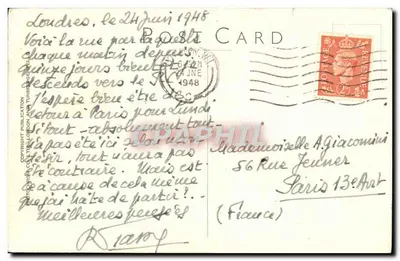 Londres, le 24 juin 1948
POST CARD
Voilà la rue par laquelle
chaque matin depuis
quinze jours bientôt je
descends vers le
J'espère bien être de
retour à Paris pour lundi
si tout - absolument tout
n'a pas été ici selon mon
désir, tout n'aura pas
été contraire. Mais est-
ce à cause de cela même
que j'ai hâte de partir?...
Meilleures pensées
JNE
1948
Mademoiselle A Giacomini
56 Rue Jenner
Paris 13e Arrt
(France)